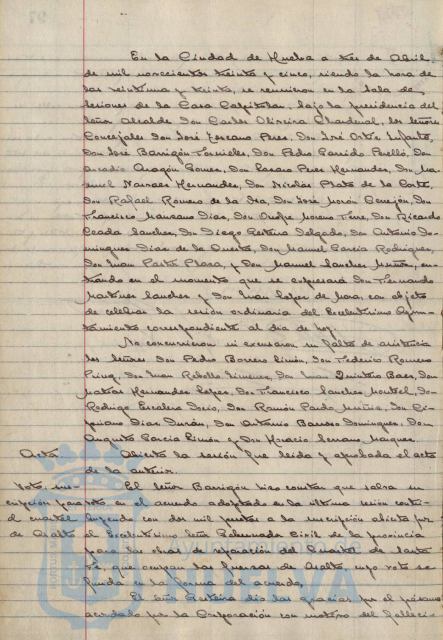 En la Ciudad de Huelva a tres de Abril
de mil novecientos treinta y cinco, siendo la hora de
las veintiuna y treinta, se reunieron en la Sala de
sesiones de la Casa Capitular, bajo la presidencia del
señor Alcalde Don Carlos Oliveira Chardenal, los señores
Concejales Don José Terrano Perez, Don José Ortiz Infante,
Don José Barrigón Fornieles, Don Pedro Garrido Perelló, Don
Arcadio Aragón Gomez, Don Lazaro Perez Hernandez, Don Ma-
nuel Narvaez Hernandez, Don Nicolás Plata de la Corte,
Don Rafael Romero de la Osa, Don José Morón Cenejón, Don
Francisco Manzano Dias, Don Onofre Moreno Ferre, Don Ricardo
Ceada Sanchez, Don Diego Gestera Delgado, Don Antonio Do-
minguez Dias de la Questa, Don Manuel Garcia Rodriguez,
Don Juan Plaza, y Don Manuel Sanchez Muñiz, en-
trando en el momento que se expresará Don Fernando
Martinez Sanchez y Don Juan Lopez de Mora, con objeto
de celebrar la sesión ordinaria del Excelentísimo Ayun-
tamiento correspondiente al dia de hoy.
No concurrieron ni excusaron su falta de asistencia
los señores Don Pedro Borrero Limón, Don Federico Romero
Don Juan Rebollo Jimenez, Don Juan Quintero Baez, Don
Matias Hernandez Lopez, Don Francisco Sanchez Montiel, Don
Rodrigo Don Ramón Pardo Muñiz, Don Ci-
priano Dias Durán, Don Antonio Barroso Dominguez, Don
Augusto Garcia Limón y Don Horacio Serrano Marquez.
Acta. Abierta la sesión fue leida y aprobada el acta
de la anterior.
Voto, ins- El señor Barrigón hizo constar que salva su
cripción para voto en el acuerdo adoptado en la última sesión contri-
el cuartel buyendo con dos mil pesetas a la suscripción abierta por
de Asalto el Excelentísimo señor Gobernador Civil de la provincia
para las obras de reparación del Cuartel de Santa
Fé, que ocupan las fuerzas de Asalto, cuyo voto se
funda en la forma del acuerdo.
El señor Gestera dió las gracias por el pésame
acordado por la Corporación con motivo del falleci-